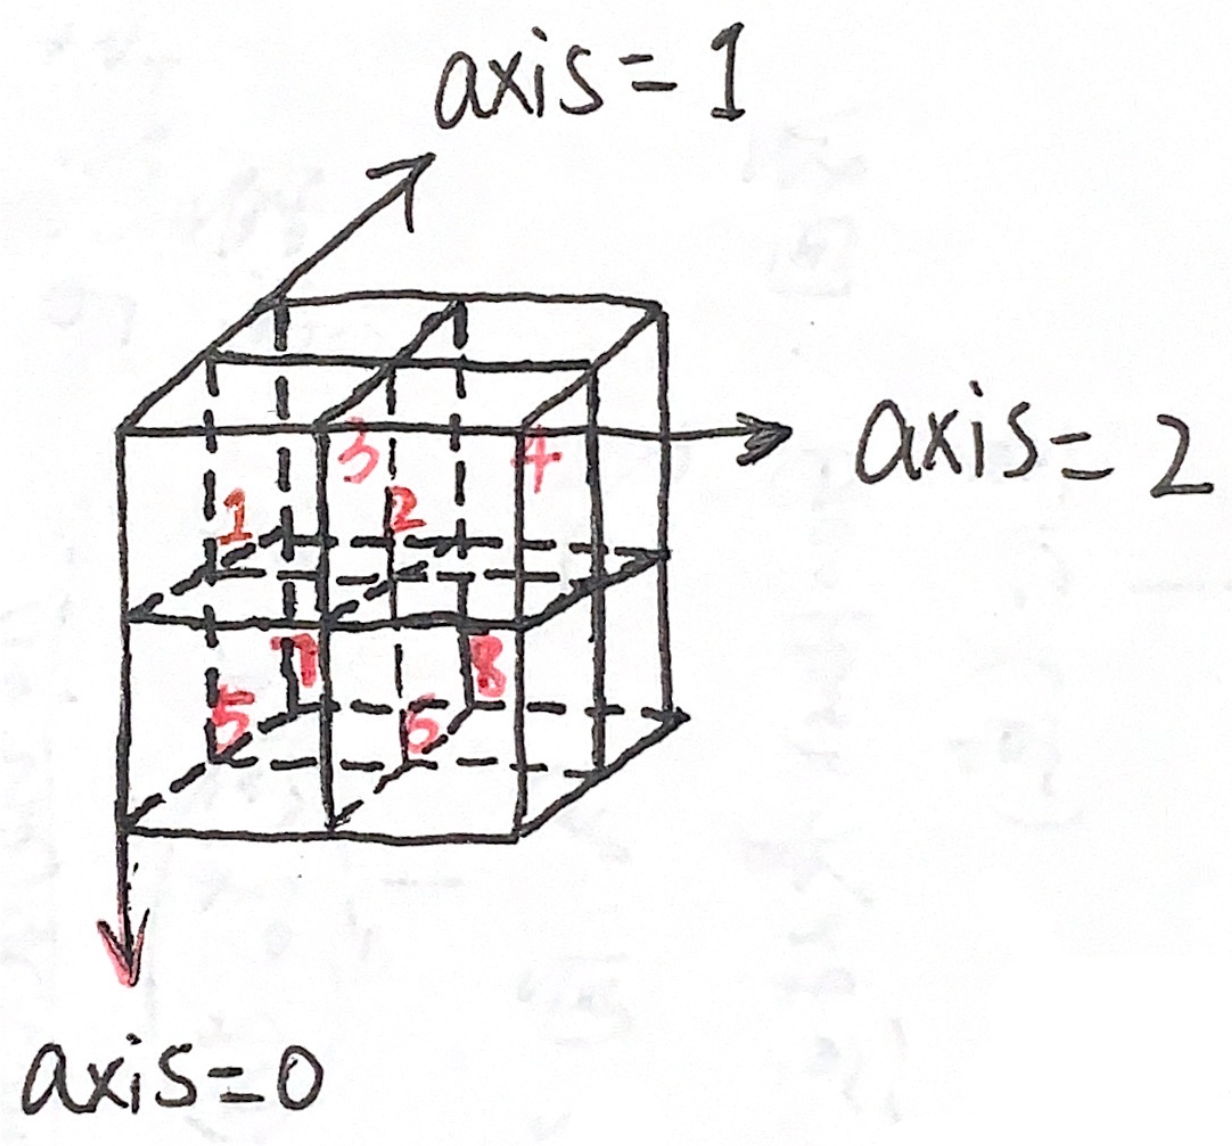 axis=1
axis=2
3 4
1 2
7 8
5 6
axis=0